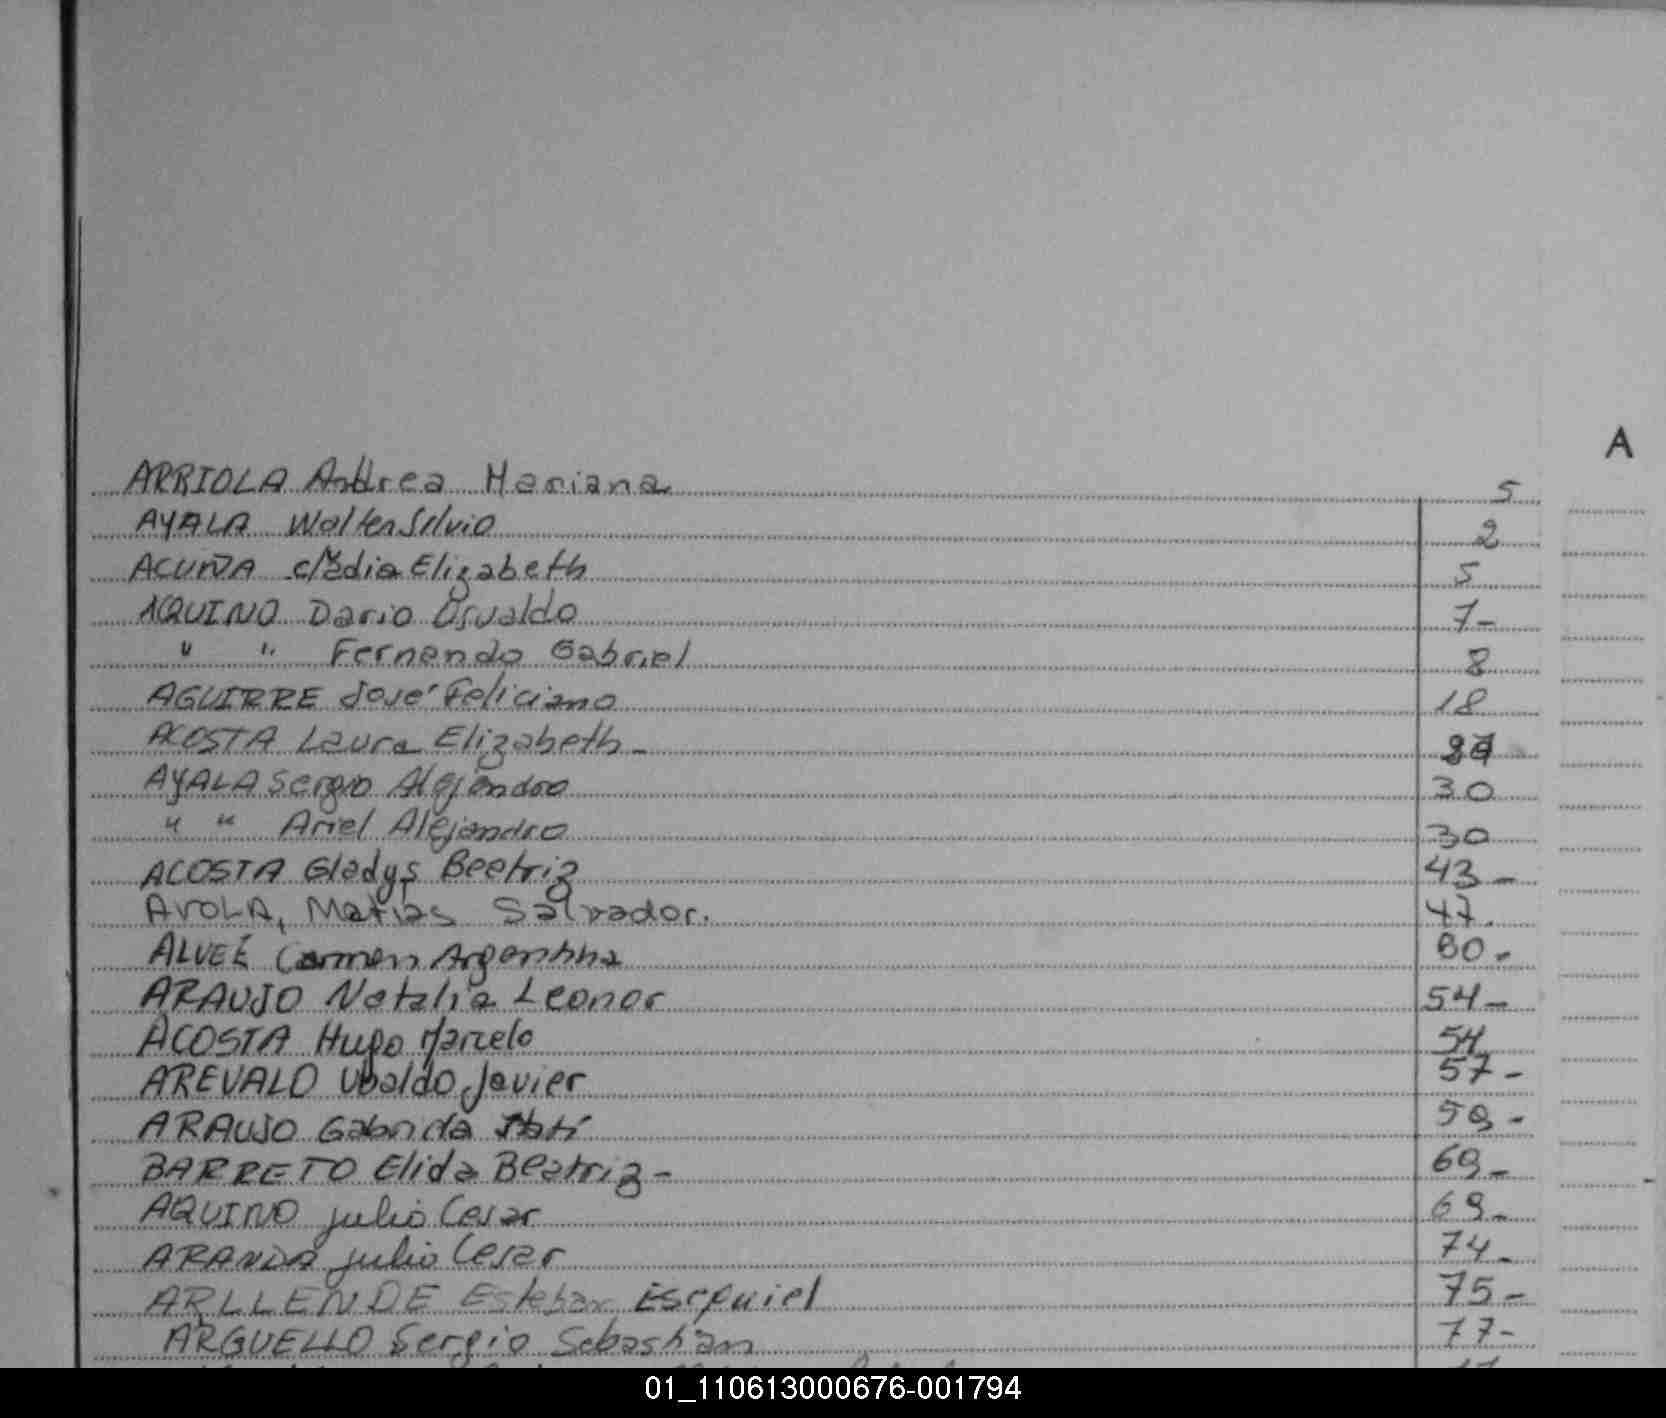 A
ARRIOLA Andrea Mariana 5
AYALA Walter Silvio 2
ACUÑA Elizabeth 5
AQUINO Dario Osvaldo 7-
" " Fernando Gabriel 8
AGUIRRE José Feliciano 18
ACOSTA Laura Elizabeth-
AYALA Sergio Alejandro 30
" " Ariel Alejandro 30
ACOSTA Gladys Beatriz 43-
AVOLA, Matias Salvador. 47.
Carmen Argentina
ARAUJO Natalia Leonor 54-
ACOSTA Hugo Marcelo 54
AREVALO Ubaldo Javier 57-
ARAUJO Gabriela Itatí 59-
BARRETO Elida Beatriz- 69-
AQUINO julio Cesar 69-
ARANDA julio Cesar 74-
ARLLENDE Esteban Esequiel 75-
ARGUELLO Sergio Sebastián 77-
01_110613000676-001794